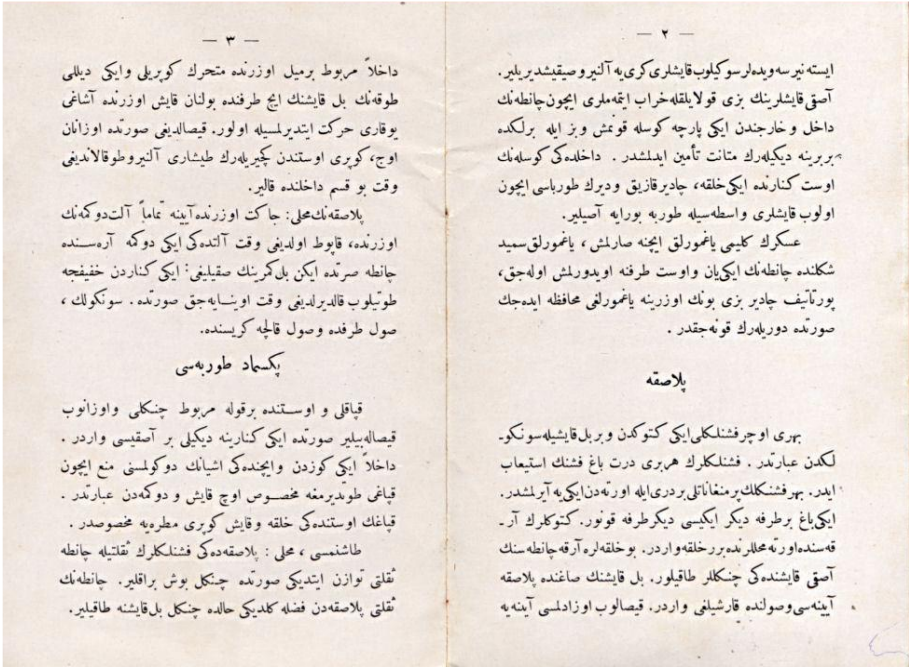 — ٢ —
ایسته نیرسه ویده لر سوكیلوب قایشلری كری یه آلنیر وصیقیشدیریلیر.
آصقی قایشلرینك بزی قولایلقله خراب ایتمه ملری ایچون چانطه نك
داخل وخارجندن ایكی پارچه كوسله قونمش وبز ایله برلكده
بربرینه دیكیله رك متانت تأمین ایدلمشدر . داخلده كی كوسله نك
اوست كنارنده ایكی خلقه ، چادیر قازیق ودیرك طورباسی ایچون
اولوب قایشلری واسطه سیله طوربه بورایه آصیلیر.
عسكرك كلیمی یاغمورلق ایچنه صارلمش ، یاغمورلق سمید
شكلنده چانطه نك ایكی یان واوست طرفنه اویدورلمش اوله جق،
پورتاتیف چادیر بزی بونك اوزرینه یاغمورلغی محافظه ایده جك
صورتده دوریله رك قونه جقدر .
پلاصقه
بهری اوچر فشنلكلی ایكی كتوكدن وبر بل قایشیله سونكو-
لكدن عبارتدر . فشنلكلرك هربری درت باغ فشنك استیعاب
ایدر. بهر فشنكلك پرمنغاناتلی بر دری ایله اورته دن ایكی یه آیرلمشدر.
ایكی باغ برطرفه دیكر ایكیسی دیكر طرفه قونور. كتوكلرك آر-
قه سنده اورته محللرنده برر خلقه واردر. بو خلقه لره آرقه چانطه سنك
آصقی قایشنده كی چنكللر طاقیلور. بل قایشنك صاغنده پلاصقه
آیینه سی وصولنده قارشیلغی واردر. قیصالوب اوزادلمسی آیینه یه
— ٣ —
داخلاً مربوط برمیل اوزرنده متحرك كوپریلی وایكی دیللی
طوقه نك بل قایشنك ایچ طرفنده بولنان قایش اوزرنده آشاغی
یوقاری حركت ایتدیرلمسیله اولور. قیصالدیغی صورتده اوزانان
اوج، كوپری اوستندن كچیریله رك طیشاری آلنیر وطوقالاندیغی
وقت بو قسم داخلنده قالیر.
پلاصقه نك محلی: جاكت اوزرنده آیینه تماماً آلت دوكمه نك
اوزرنده، قاپوط اولدیغی وقت آلتده كی ایكی دوكمه آره سنده
چانطه صرتده ایكن بل كمرینك صقیلیغی: ایكی كناردن خفیفجه
طوتیلوب قالدیرلدیغی وقت اوینایه جق صورتده . سونكولك ،
صول طرفده وصول قالچه كریسنده.
پكسماد طوربه سی
قپاقلی و اوستنده برقوله مربوط چنكلی واوزانوب
قیصاله بیلیر صورتده ایكی كنارینه دیكیلی بر آصقیسی واردر .
داخلاً ایكی كوزدن وایچنده كی اشیانك دوكولمسنی منع ایچون
قپاغی طوبدیرمغه مخصوص اوچ قایش و دوكمه دن عبارتدر .
قپاغك اوستنده كی خلقه وقایش كوپری مطره یه مخصوصدر .
طاشنمسی ، محلی : پلاصقه ده كی فشنلكلرك ثقلتیله چانطه
ثقلتی توازن ایتدیكی صورتده چنكل بوش براقلیر. چانطه نك
ثقلتی پلاصقه دن فضله كلدیكی حالده چنكل بل قایشنه طاقیلیر.